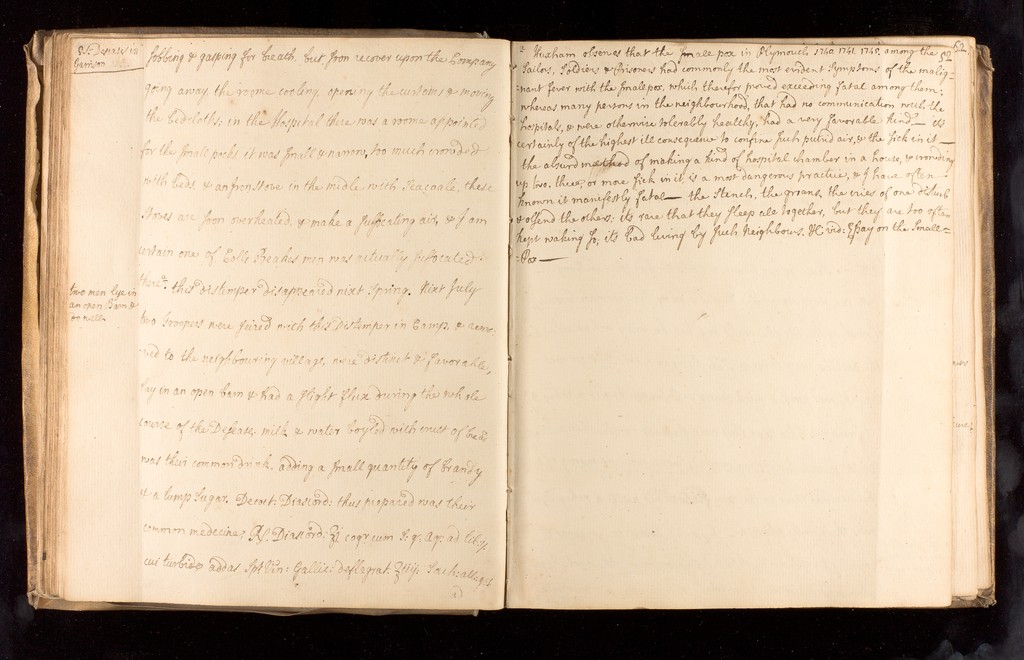 Diseases in
Garrison
sobbing & gasping for breath, but soon recover upon the Company
going away, the roome cooling, opening the curtains & moving
the bedcloths; in the Hospital there was a roome appointed
for the small pocks it was small & narrow, too much crowded
with beds & an Iron stove in the midle with seacoale, these
stoves are soon overheated, & make a suffocating air, & I am
certain one of men was actually suffocated
there. this distemper disappeared next Spring. Next July
two men lye in
an open Barn &
do well.
two troopers were seized with this Distemper in Camp, & remo-
-ved to the neighbouring village, were distinct & favorable,
lay in an open barn & had a slight flux during the whole
course of the Disease, milk & water boyled with crust of bread
was their common drink, adding a small quantity of brandy
& a lump sugar. Decoct: Diascord: thus prepared was their
common medicine; Diascord: coq: cum s. q. Aq: ad
cui turbid addas Spt Vin: Gallic: deflagrat. Sach:
52
Huxham observes that the small pox in Plymouth 1740. 1741. 1745. among the
Sailors, Soldiers & Prisoners had commonly the most evident symptoms of the malig-
-nant fever with the smallpox, which therefore proved exceeding fatal among them;
whereas many persons in the neighbourhood, that had no communication with the
hospitals, & were otherwise tolerably healthy, had a very favorable kind — its
certainly of the highest ill consequence to confine such putrid air, & the sick in it —
the absurd method of making a kind of hospital chamber in a house, & crowding
up two, three, or more sick in it, is a most dangerous practice, & I have often
known it manifestly fatal — the stench, the groans, the cries of one disturb
& offend the others; its rare that they sleep altogether, but they are too often
kept waking so; its bad living by such Neighbours. vid: Essay on the Small=
=Pox —